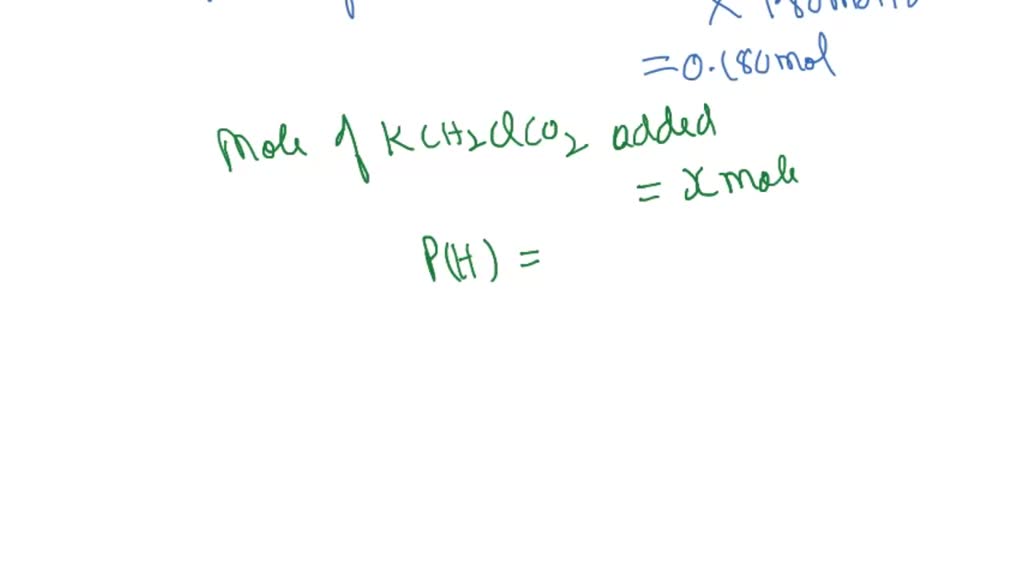 =0.180mol
Mole of KCH₂ClCO₂ added
= x mole
P(H) =